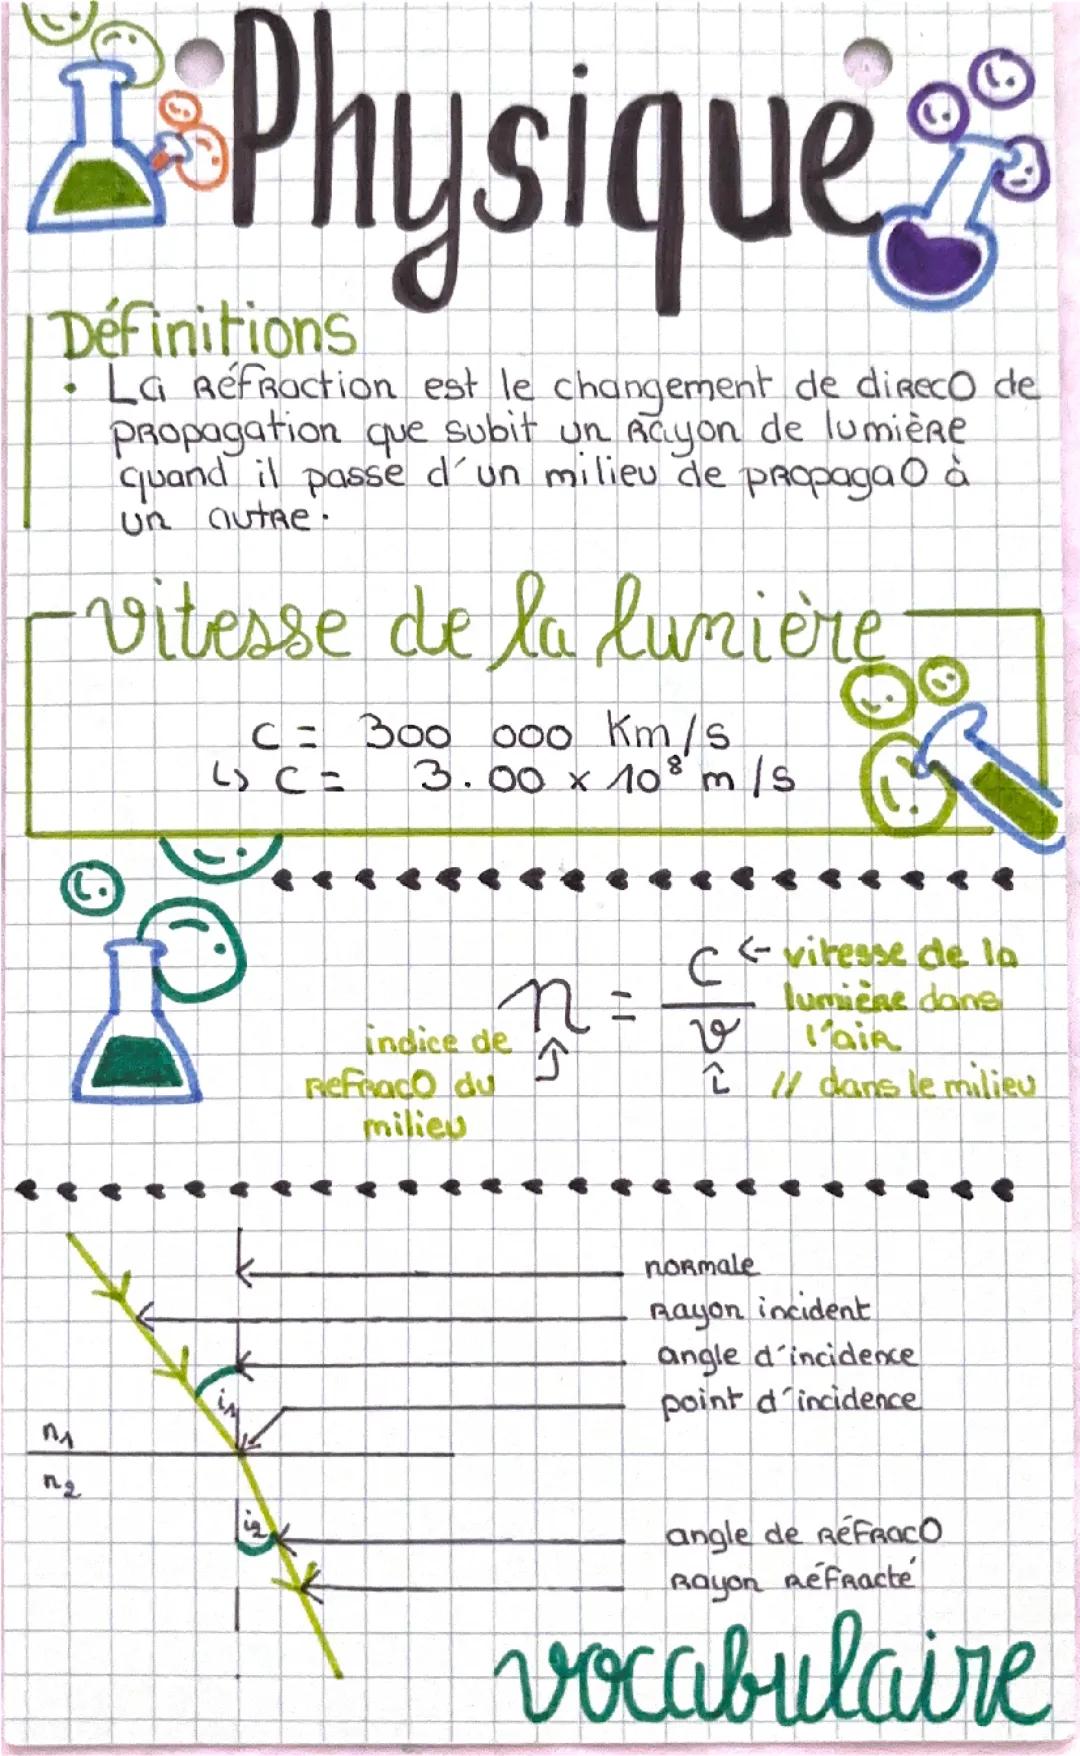 Physique
Définitions
• La Réfraction est le changement de direcO de
propagation que subit un rayon de lumière
quand il passe d'un milieu de propagaO à
un autre.
vitesse de la lumière
c = 300 000 Km/s
↳ c = 3.00 x 10⁸ m/s
n = c/v
← vitesse de la
lumière dans
l'air
indice de
RefracO du
milieu
// dans le milieu
normale
Rayon incident
angle d'incidence
point d'incidence
i₁
n₁
n₂
i₂
angle de RéfracO
Rayon Réfracté
vocabulaire